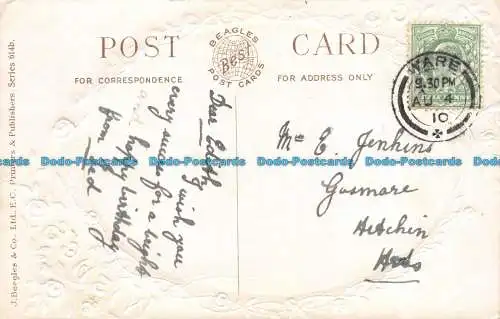 POST CARD
BEAGLES
BCS
POST CARDS
FOR CORRESPONDENCE
FOR ADDRESS ONLY
WARE
9.30 PM
AU 4
10
Dear
I wish you
every success for a bright
and happy birthday
from
Mr E. Jenkins
Gosmore
Hitchin
Herts
J. Beagles & Co., Ltd., E.C. Printers & Publishers. Series 614b.
Dodo-Postcards Dodo-Postcards Dodo-Postcards Dodo-Postcards Dodo-Postcards Dodo-Postcards